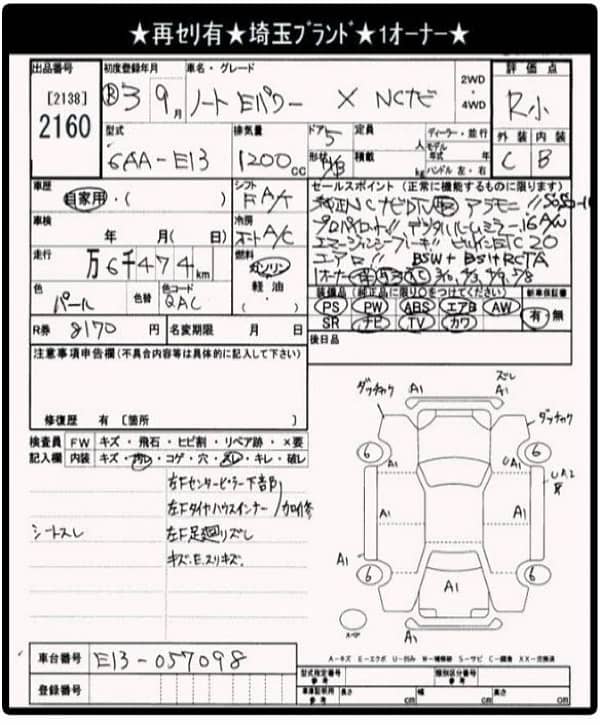 ★再セリ有★埼玉ブランド★1オーナー★
出品番号 初度登録年月 車名・グレード 2WD・4WD 評価点
[2138]
2160
Ⓡ3 9月 ノート Eパワー X NCナビ R小
型式 排気量 ドア 定員 人 ディーラー・並行 外装 内装
6AA-E13 1200cc 5 形状 H/B 積載 kg モデル年式 年 ハンドル 左・右 C B
車歴 シフト セールスポイント (正常に機能するものに限ります)
自家用・( ) FA/T 純正NCナビDTV アラモニ!!
車検 冷房 プロパイロット!! デジタルルームミラー・16A/W
年 月( 日) オートA/C エマージェンシーブレーキ!! ビルトインETC2.0
走行 燃料 エアロ!! BSW+BSI+RCTA
万6千474km ガソリン 軽油 ( ) 1オーナー
色 色替 色コード 装備品 (純正品に限り○をつけてください) 新車保証書
パール QAC PS PW ABS エアB AW 有・無
SR ナビ TV カワ
R券 8170円 名変期限 月 日 後日品
注意事項申告欄(不具合内容等は具体的に記入して下さい)
修復歴 有 [箇所 ]
検査員 FW キズ・飛石・ヒビ割・リペア跡・×要
記入欄 内装 キズ・汚レ・コゲ・穴・スレ・キレ・破レ
左Fセンターピラー下部
左Fタイヤハウスインナー 加修
シートスレ 左F足廻リズレ
キズ.E.スリキズ.
ダッチャク A1 ズレ A1 ダッチャク
6 6
A1 UA1
UA2
A1 A1
A1
6 6
A1
スペア A1
A-キズ E-エクボ U-凹み W-補修跡 S-サビ C-腐食 XX-交換済
車台番号 E13-057098
登録番号
型式指定番号 参考 類別区分番号 参考
車庫証明用参考 長さ cm 幅 cm 高さ cm